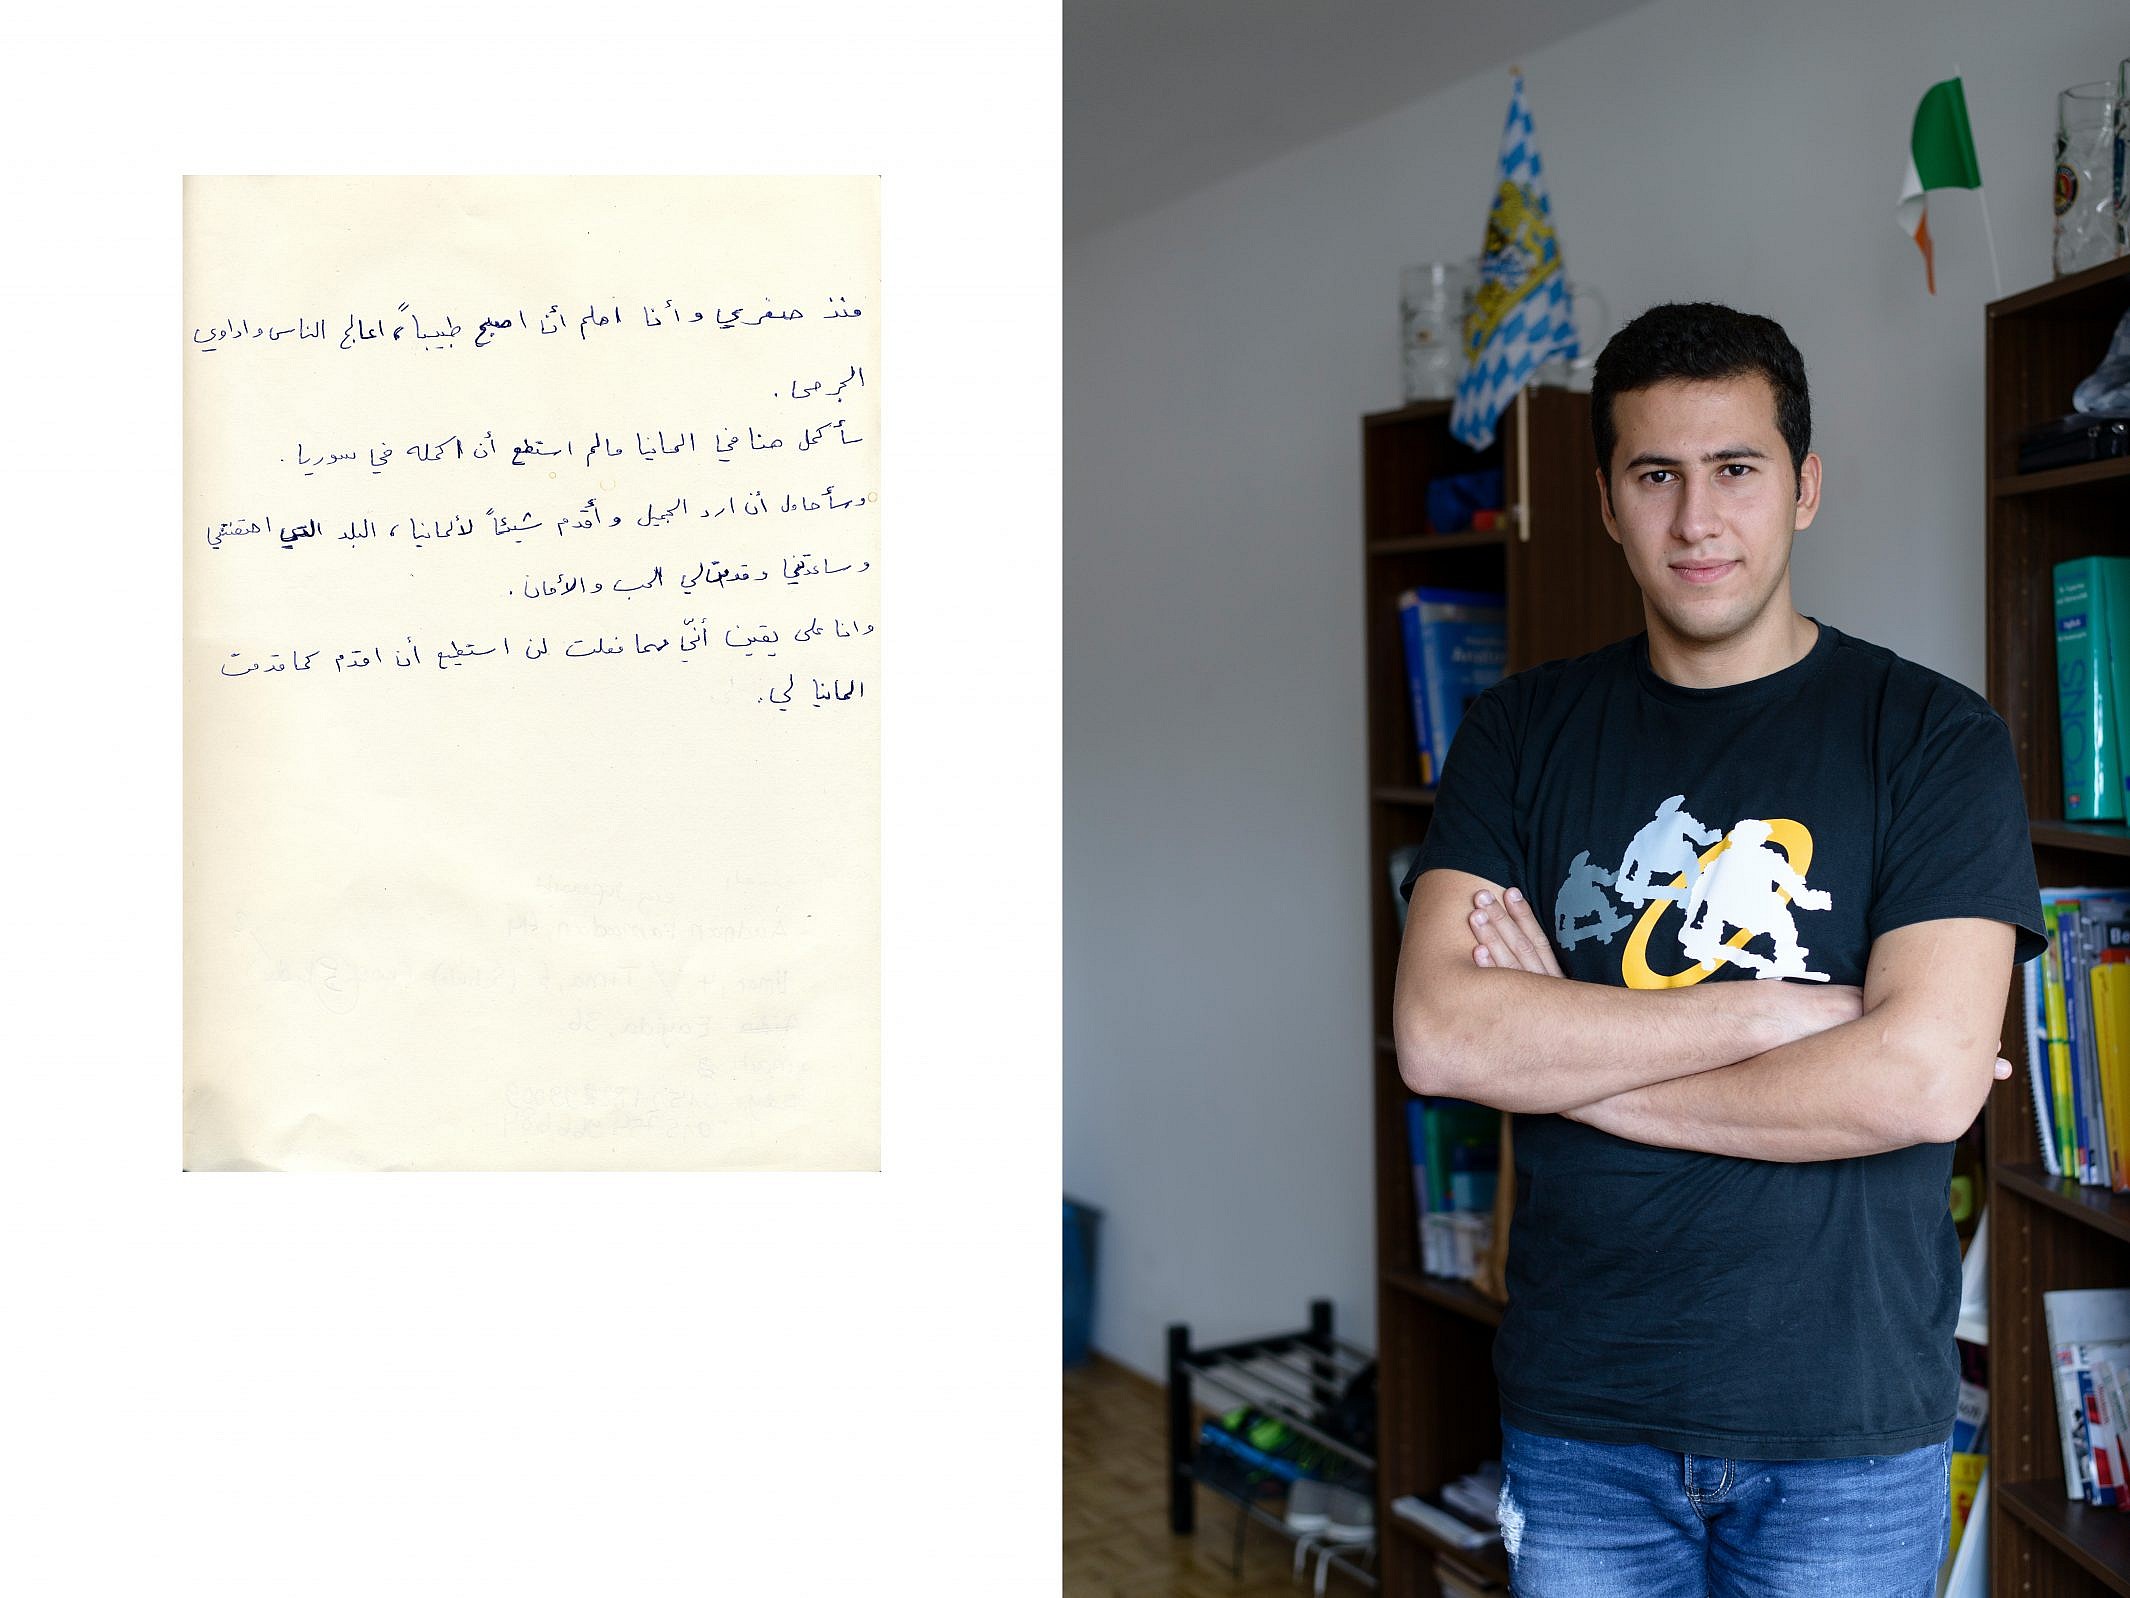 منذ صغري وأنا احلم أن اصبح طبيباً، اعالج الناس واداوي
الجرحى.
سأكمل هنا في المانيا مالم استطع أن اكمله في سوريا.
وسأحاول أن ارد الجميل وأقدم شيئاً لألمانيا، البلد التي احتضنتني
وساعدتني وقدمت لي الحب والأمان.
وانا على يقين أنّي مهما فعلت لن استطيع أن اقدم كما قدمت
المانيا لي.
PONS